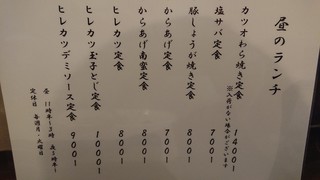 昼のランチ
カツオわら焼き定食 1400ー
※入荷がない場合がございます
塩サバ定食 700ー
豚しょうが焼き定食 800ー
からあげ定食 700ー
からあげ南蛮定食 800ー
ヒレカツ定食 800ー
ヒレカツ玉子とじ定食 1000ー
ヒレカツデミソース定食 900ー
定休日 毎週月・火曜日